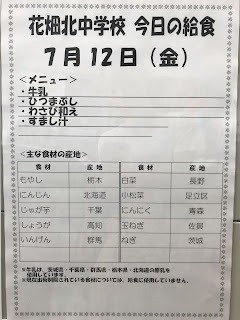 花畑北中学校 今日の給食
7月12日（金）
＜メニュー＞
・牛乳
・ひつまぶし
・わさび和え
・すまし汁
＜主な食材の産地＞
食材 産地 食材 産地
もやし 栃木 白菜 長野
にんじん 北海道 小松菜 足立区
じゃが芋 千葉 にんにく 青森
しょうが 高知 玉ねぎ 佐賀
いんげん 群馬 ねぎ 茨城
※牛乳は、茨城県・千葉県・群馬県・栃木県・北海道の原乳を
使用しています。